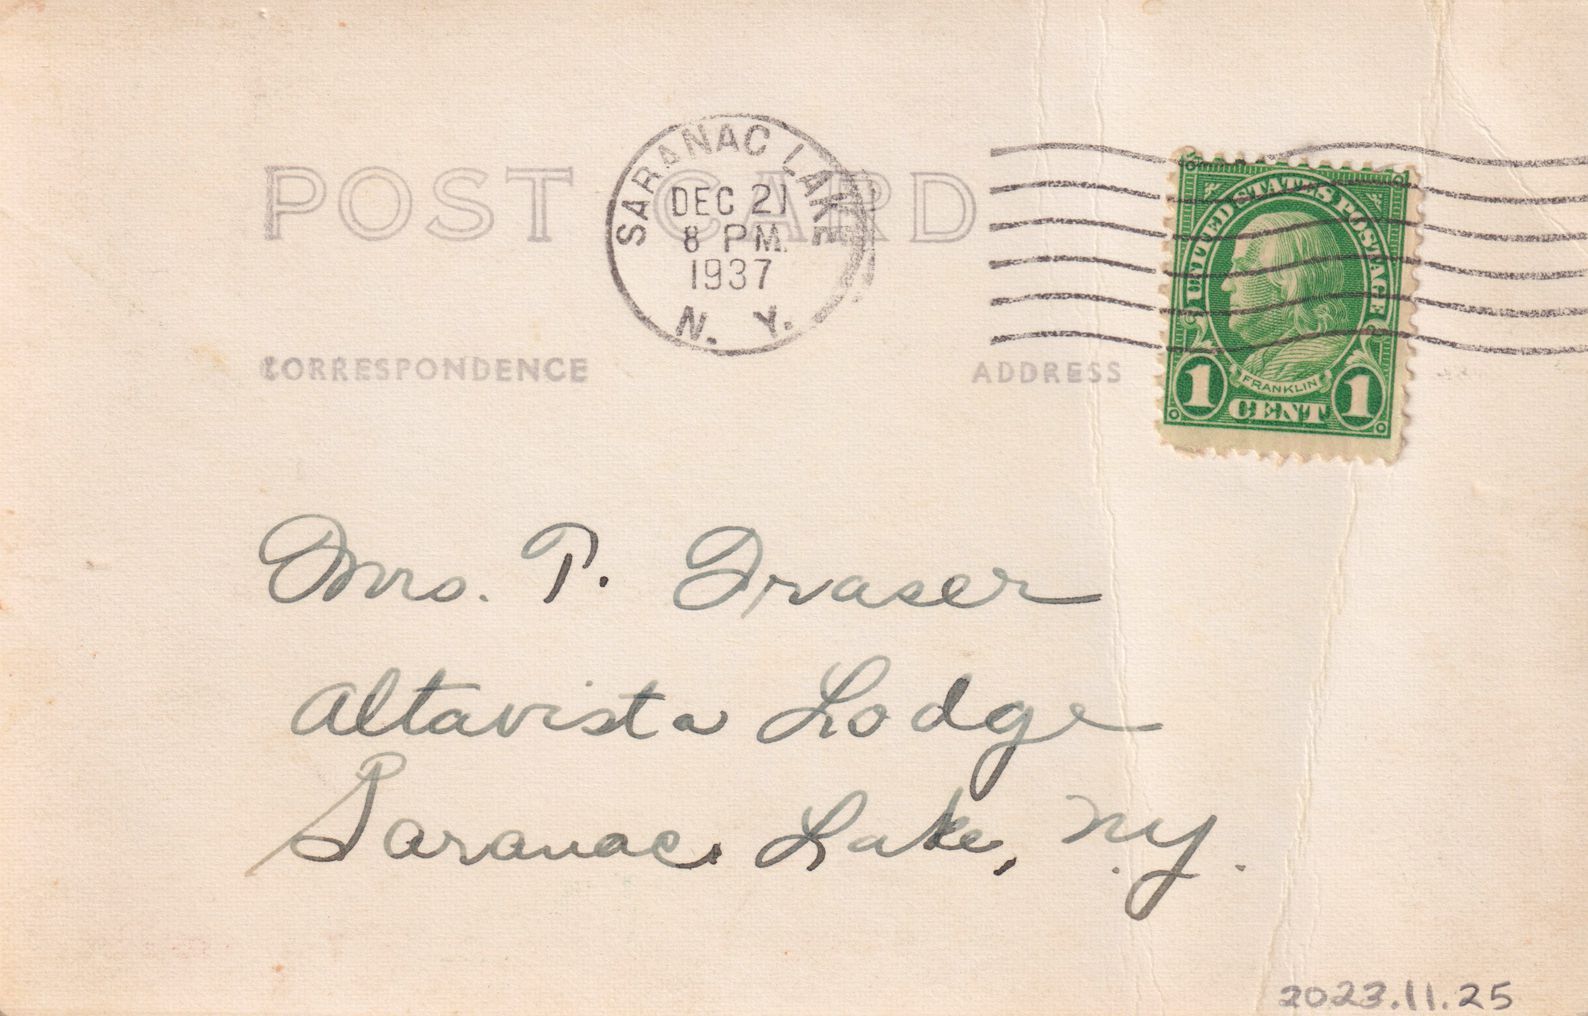 POST CARD
SARANAC LAKE
DEC 21
8 PM
1937
N. Y.
CORRESPONDENCE
ADDRESS
UNITED STATES POSTAGE
FRANKLIN
1 CENT 1
Mrs. P. Fraser
Altavista Lodge
Saranac Lake, N.Y.
2023.11.25